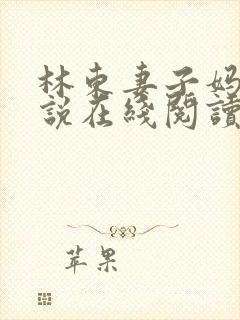 林東妻子媽
說在綫閱讀
苹果